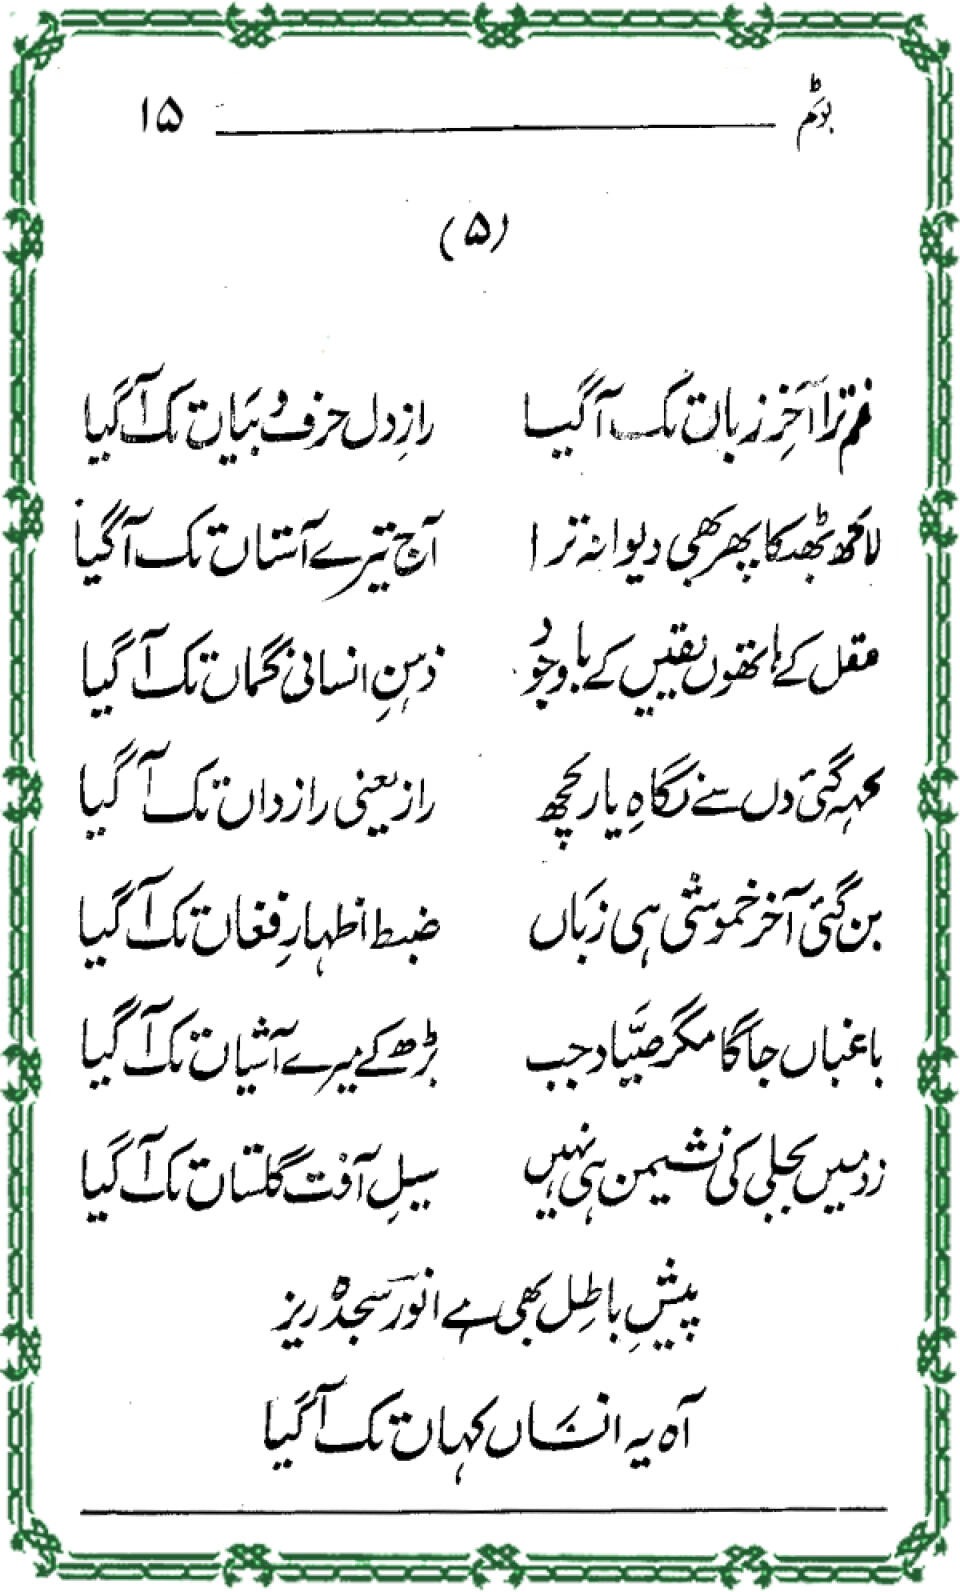 بوئم ۱۵
(۵)
غم ترا آخر زباں تک آ گیا رازِ دل حرف و بیاں تک آ گیا
لاکھ بھٹکا پھر بھی دیوانہ ترا آج تیرے آستاں تک آ گیا
عقل کے ہاتھوں یقیں کے باوجود ذہنِ انسانی گماں تک آ گیا
کہہ گئی دل سے نگاہِ یار کچھ راز یعنی رازداں تک آ گیا
بن گئی آخر خموشی ہی زباں ضبط اظہارِ فغاں تک آ گیا
باغباں جاگا مگر صیّاد جب بڑھ کے میرے آشیاں تک آ گیا
زد میں بجلی کی نشیمن ہی نہیں سیلِ آفت گلستاں تک آ گیا
پیشِ باطل بھی ہے انورؔ سجدہ ریز
آہ یہ انساں کہاں تک آ گیا